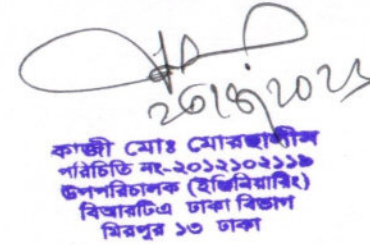 কাজী মোঃ মোরছালীন
পরিচিতি নং-২০১২১০২১১৯
উপপরিচালক (ইঞ্জিনিয়ারিং)
বিআরটিএ ঢাকা বিভাগ
মিরপুর ১৩ ঢাকা